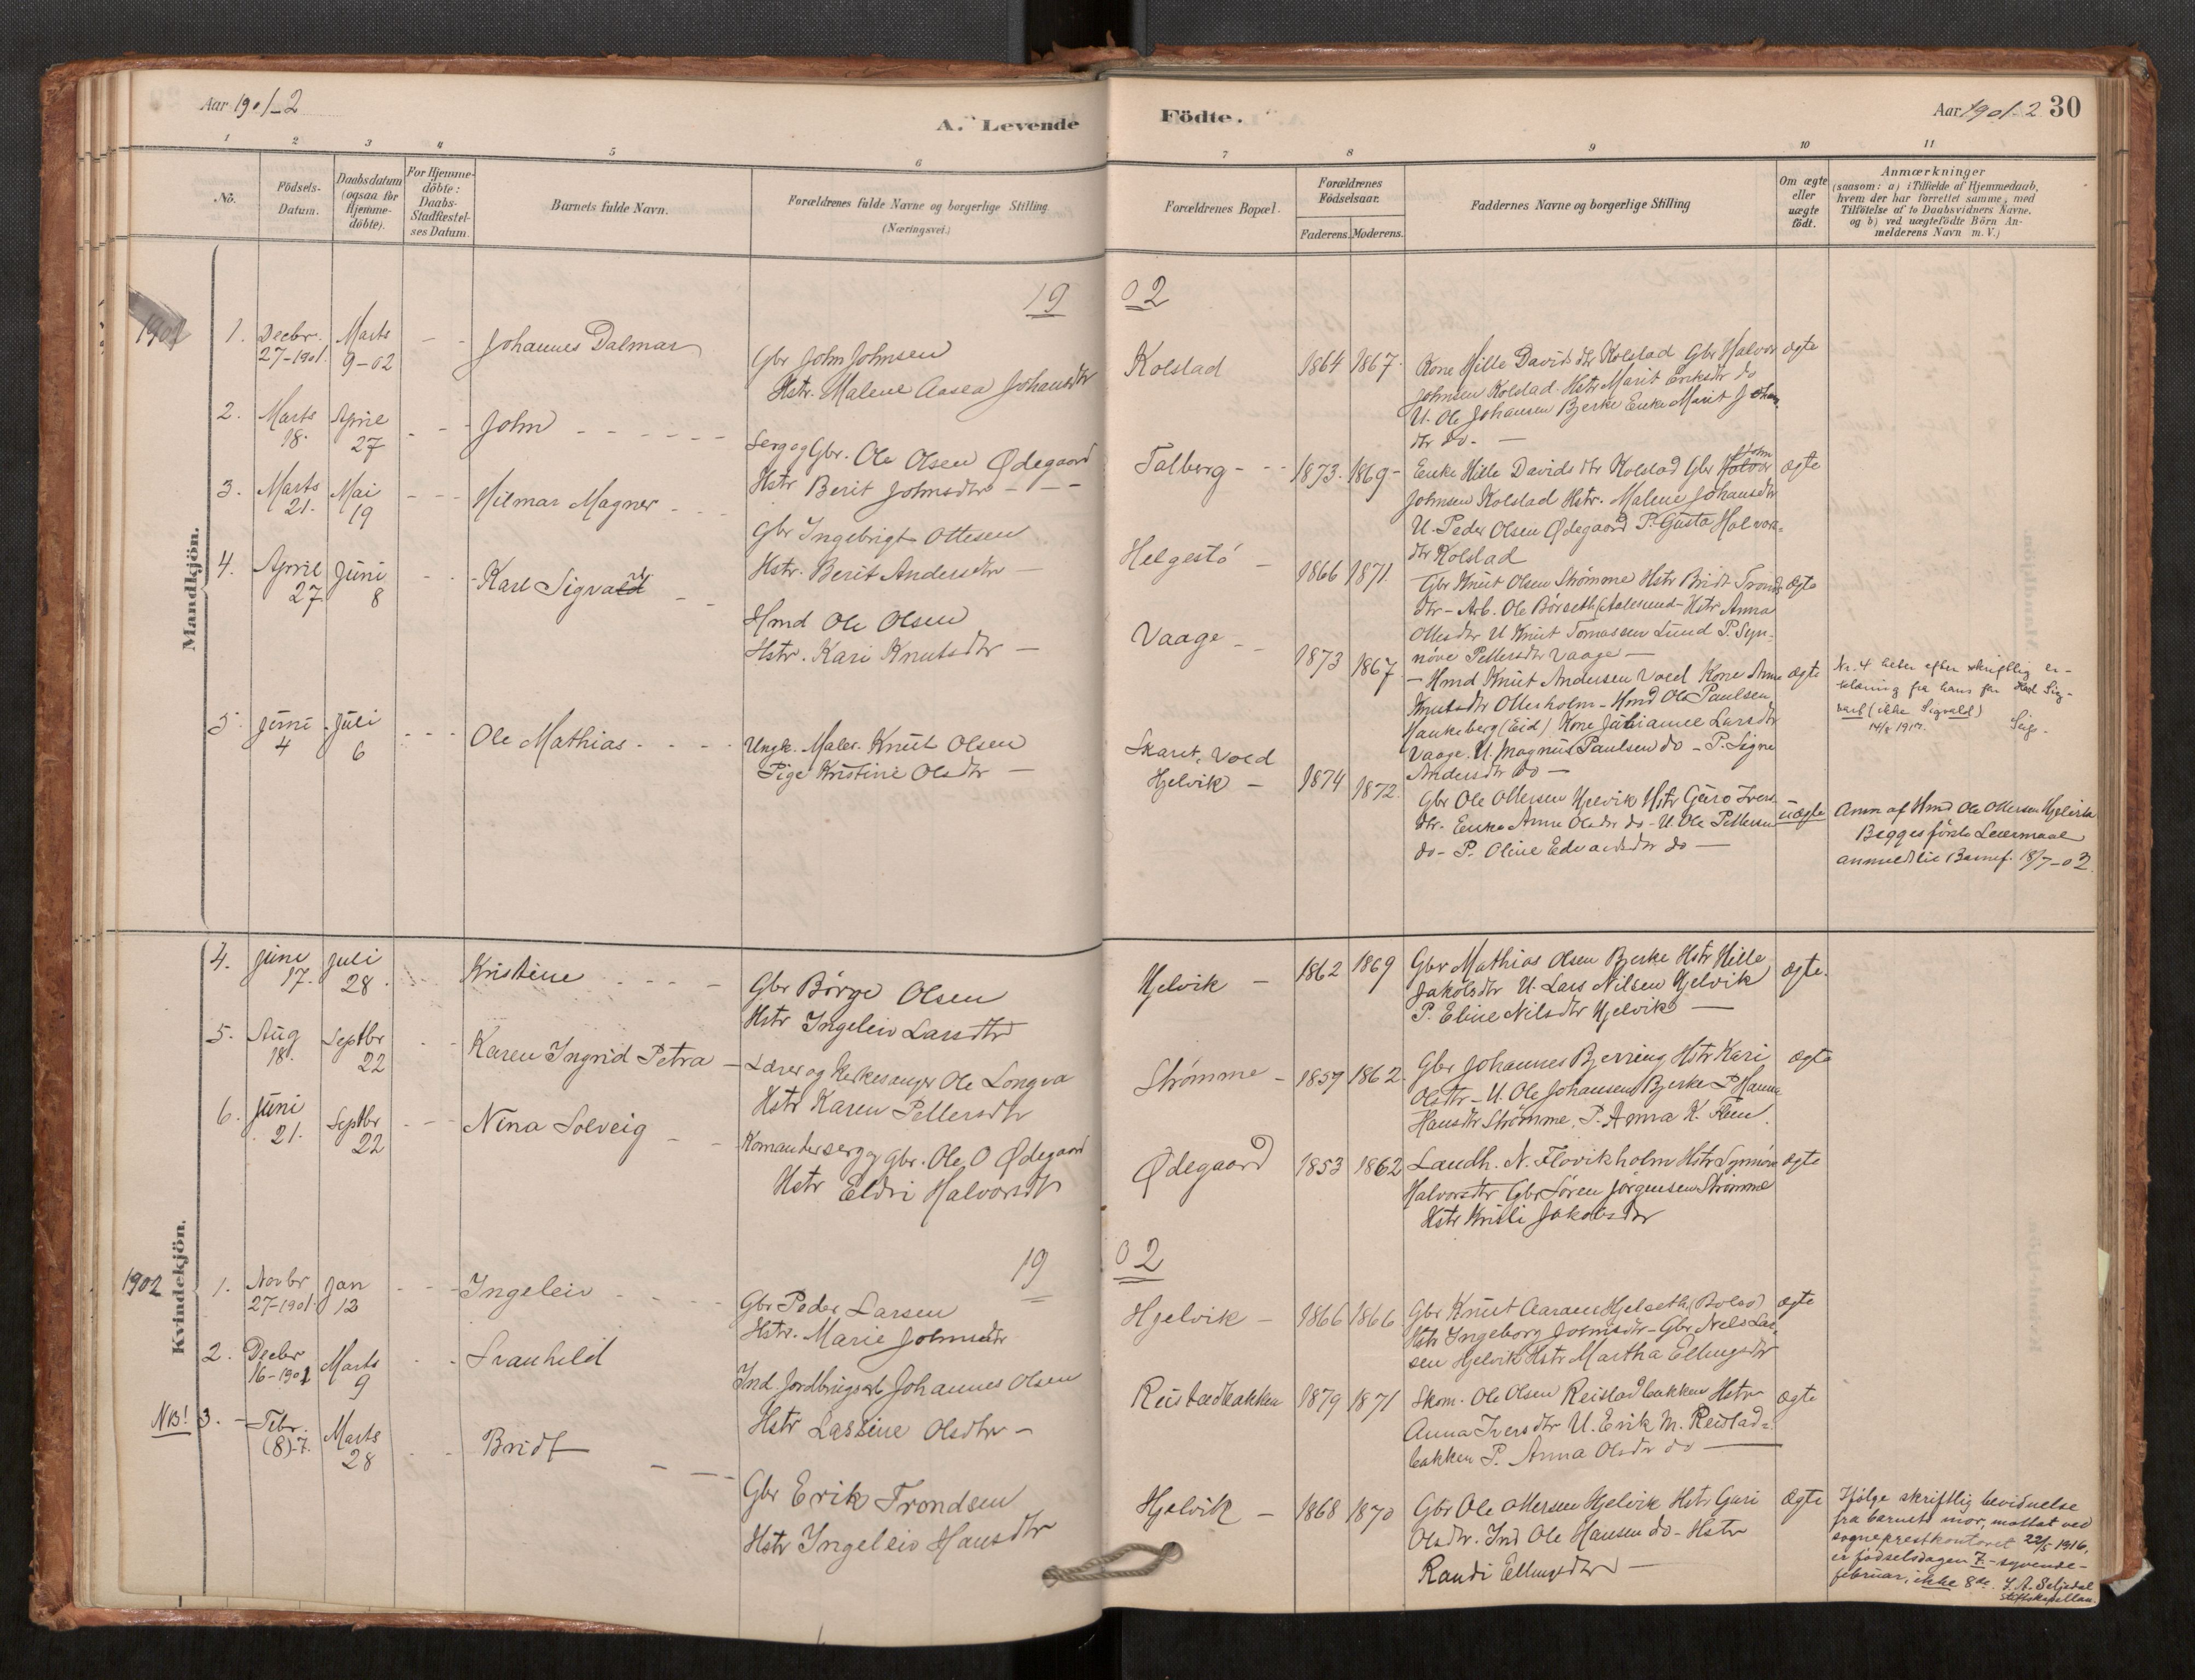 Aar 1901-2
A. Levende
Födte.
Aar 1901-2 30
1 2 3 4 5 6 7 8 9 10 11
No.
Födsels-
Datum.
Daabsdatum
(ogsaa for
Hjemme-
döbte).
For Hjemme-
döbte:
Daabs-
Stadfæstel-
ses Datum.
Barnets fulde Navn.
Forældrenes fulde Navne og borgerlige Stilling
(Næringsvei.)
Forældrenes Bopæl.
Forældrenes
Födselsaar.
Faderens. Moderens.
Faddernes Navne og borgerlige Stilling
Om ægte
eller
uægte
födt.
Anmærkninger
(saasom: a) i Tilfælde af Hjemmedaab,
hvem der har forrettet samme, med
Tilföielse af to Daabsvidners Navne,
og b) ved uægtefödte Börn An-
melderens Navn m. V.)
Mandkjön.
19 02
1902
1. Decbr. 27-1901. Marts 9-02 - - Johannes Dalmar
Gbr John Johnsen
Hstr. Malene Aasea Johansdtr
Kolstad 1864 1867.
Kone Hille Davidsdtr Kolstad Gbr Halvor
Johnsen Kolstad. Hstr Marit Eriksdtr do
U. Ole Johansen Bjerke Enke Marit Johan
dtr do. -
ægte
2. Marts 18. April 27 - - John - - - - - -
Serg og Gbr. Ole Olsen Ødegaard
Hstr Berit Johnsdtr - - -
Talberg - - - 1873. 1869-
Enke Hille Davidsdtr Kolstad Gbr Halvor John
Johnsen Kolstad Hstr. Malene Johansdtr
U. Peder Olsen Ødegaard P. Gusta Halvors-
dtr Kolstad
ægte
3. Marts 21. Mai 19 - - - Hilmar Magner - - -
Gbr Ingebrigt Ottesen
Hstr. Berit Andersdtr -
Helgestö - 1866 1871.
Gbr Knut Olsen Strømme Hstr Bridt Tronds-
dtr - Arb. Ole Börseth (Aalesund - Hstr Anna
Ottesdtr U Knut Tomassen Lund P. Syn-
növe Pettersdtr Vaage -
ægte
4. April 27 Juni 8 - - Karl Sigvald - -
Hmd Ole Olsen
Hstr. Kari Knutsdtr -
Vaage - - 1873 1867
- Hmd Knut Andersen Voed Kone Anne
Knutsdtr Otterholm - Hmd Ole Paulsen
Haukeberg (Eid) Kone Julianne Larsdtr
Vaage. U. Magnus Paulsen do - P. Signe
Andersdtr do -
ægte
Nr. 4 heter efter skriftlig er-
klæring fra hans far Karl Sig-
vart (ikke Sigvald)
14/8 1917.
5. Juni 4 Juli 6 - - - Ole Mathias - - - -
Ungk. Maler. Knut Olsen
Pige Kristine Olsdtr -
Skaret, Voed
Hjelvik - 1874 1872.
Gbr Ole Ottersen Hjelvik Hstr Guro Ivers-
dtr. Enke Anne Olsdtr do - U. Ole Pettersen
do - P. Oline Edvardsdtr do -
uægte
Anm af Hmd Ole Ottersen Hjelvik
Begges förste Leiermaal
anmeldt 18/7-02
Kvindekjön.
4. Juni 17. Juli 28. - - Kristine - - - -
Gbr Börge Olsen
Hstr Ingeleiv Larsdtr
Hjelvik - 1862 1869
Gbr Mathias Olsen Bjerke Hstr Hille
Jakobsdtr U. Lars Nilsen Hjelvik
P. Eline Nilsdtr Hjelvik -
ægte.
5. Aug 18. Septbr 22 - - Karen Ingrid Petra -
Lærer og Kirkesanger Ole Longva
Hstr Karen Pettersdtr
Strømme - 1857 1862.
Gbr Johannes Bjerring Hstr Kari
Olsdtr - U. Ole Johansen Bjerke P Hanna
Hansdtr Strømme, P. Anna K. Steen.
ægte
6. Juni 21. Septbr 22 - - - Nina Solveig - -
Komandersergg Gbr. Ole O Ødegaard
Hstr Eldri Halvorsdtr
Ødegaard 1853 1862
Landh. N. Flovikholm Hstr Synnöve
Halvorsdtr Gbr Sören Jörgensen Strömme
Hstr Kristi Jakobsdtr
ægte
19 02
1902
1. Novbr 27-1901. Jan 13 - - - Ingeleiv - - - -
Gbr Peder Larsen
Hstr. Marie Johnsdtr
Hjelvik - 1866 1866
Gbr Knut Aarsen Hjelseth (Bolsö)
Hstr Ingeborg Johnsdtr - Gbr Nels Lar-
sen Hjelvik Hstr Martha Ellingsdtr
ægte
2. Decbr 16-1901 Marts 9 - - Svanhild
Ind. Jordbrugsarb Johannes Olsen
Hstr Lassine Olsdtr -
Reistadbakken 1879 1871
Skom. Ole Olsen Reistadbakken Hstr
Anna Iversdtr U. Erik M. Reistad-
bakken P. Anna Olsdtr do -
ægte
NB! 3. - Febr. (8)-7. Marts 28 - - Bridt - - -
Gbr Erik Trondsen
Hstr Ingeleiv Hansdtr
Hjelvik - 1868 1870
Gbr Ole Ottersen Hjelvik Hstr Guri
Olsdtr. Ind Ole Hansen do - Hstr
Randi Ellingsdtr -
ægte
Ifölge skriftlig bevidnelse
fra barnets mor, mottat ved
sogneprestkontoret 22/5 1916,
er födselsdagen 7. - syvende -
februar, ikke 8de. L. A. Seljedal
stiftskapellan.